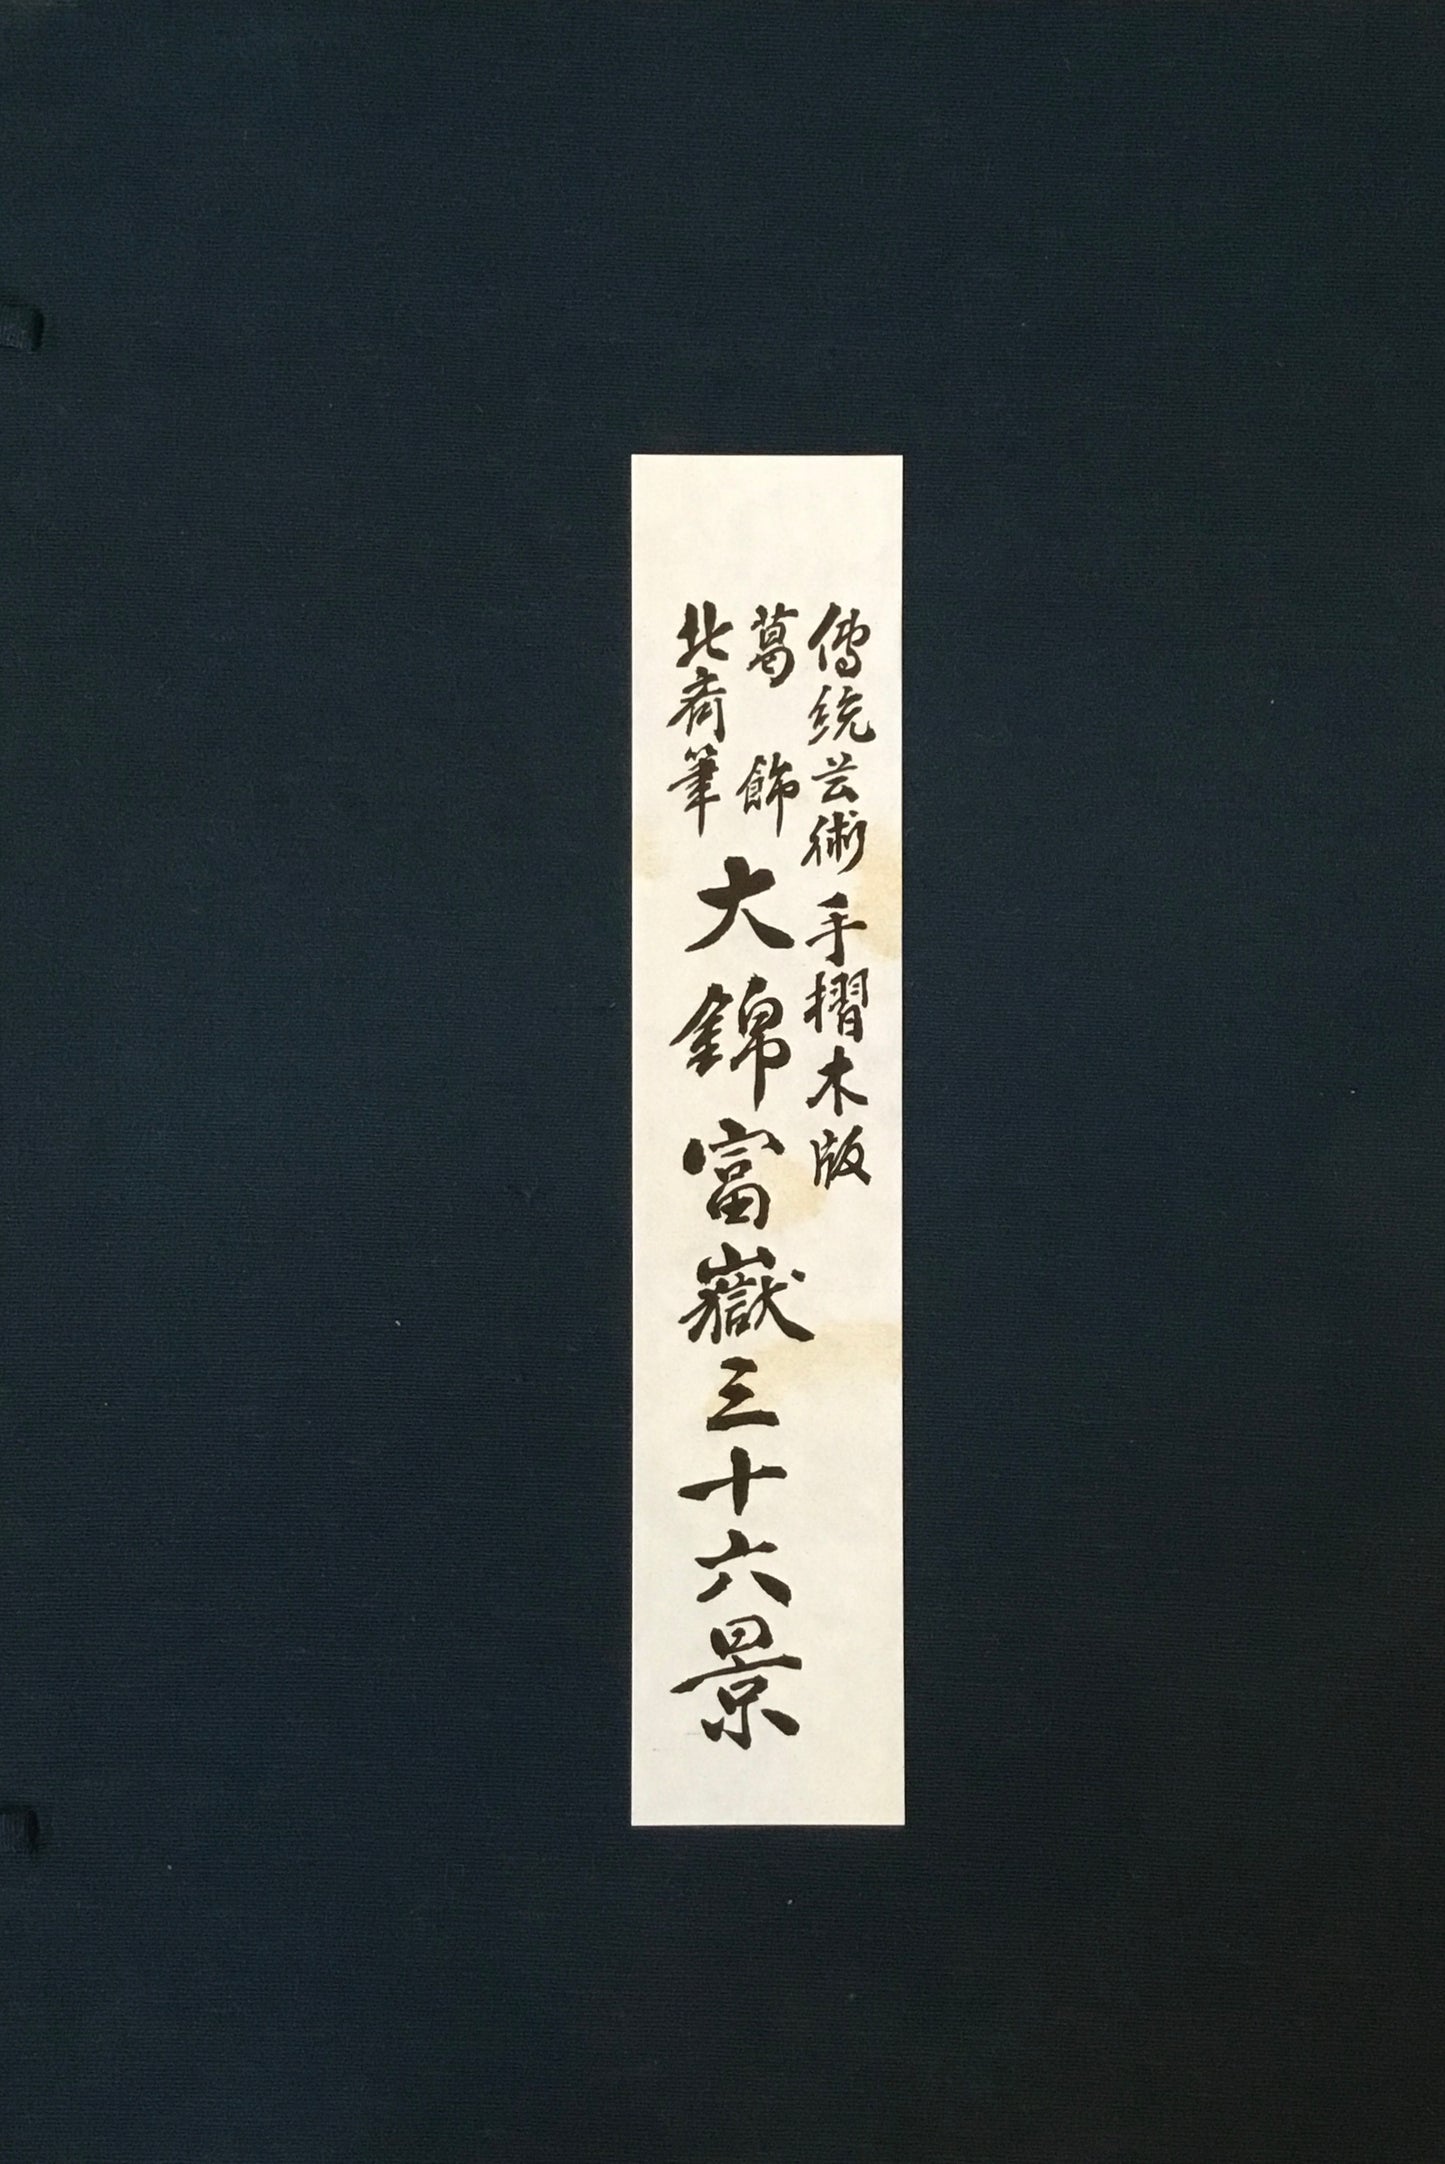 傳統芸術手摺木版
葛飾
北斎筆
大錦富嶽三十六景